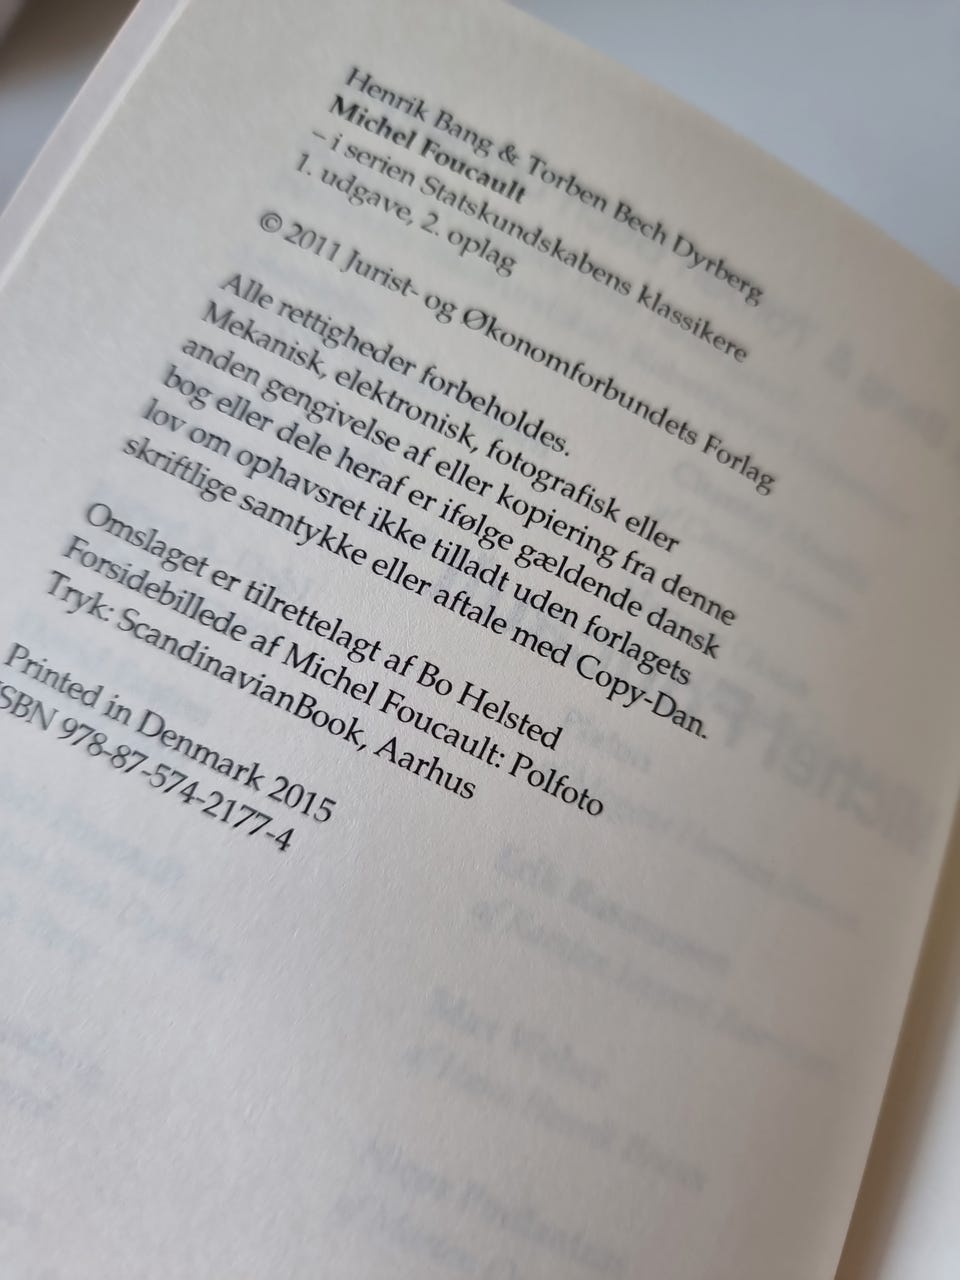 Henrik Bang & Torben Bech Dyrberg
Michel Foucault
– i serien Statskundskabens klassikere
1. udgave, 2. oplag
© 2011 Jurist- og Økonomforbundets Forlag
Alle rettigheder forbeholdes.
Mekanisk, elektronisk, fotografisk eller
anden gengivelse af eller kopiering fra denne
bog eller dele heraf er ifølge gældende dansk
lov om ophavsret ikke tilladt uden forlagets
skriftlige samtykke eller aftale med Copy-Dan.
Omslaget er tilrettelagt af Bo Helsted
Forsidebillede af Michel Foucault: Polfoto
Tryk: ScandinavianBook, Aarhus
Printed in Denmark 2015
ISBN 978-87-574-2177-4